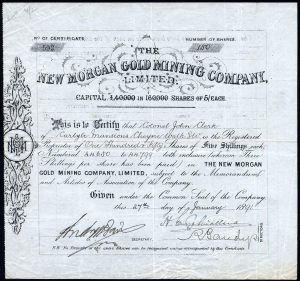 No OF CERTIFICATE.
NUMBER OF SHARES.
592
150
THE
NEW MORGAN GOLD MINING COMPANY,
LIMITED.
CAPITAL £40000 IN 160000 SHARES OF 5/ EACH.
This is to Certify that Colonel John Clerk
Carlyle Mansions Cheyne Walk SW is the Registered
Proprietor of One Hundred & Fifty Shares of Five Shillings each
Numbered to both inclusive whereon Three
Shillings per share has been paid, in THE NEW MORGAN
GOLD MINING COMPANY, LIMITED, subject to the Memorandum
and Articles of Association of the Company.
Given under the Common Seal of the Company
this 27th day of January 1891.
SECRETARY.
DIRECTORS.